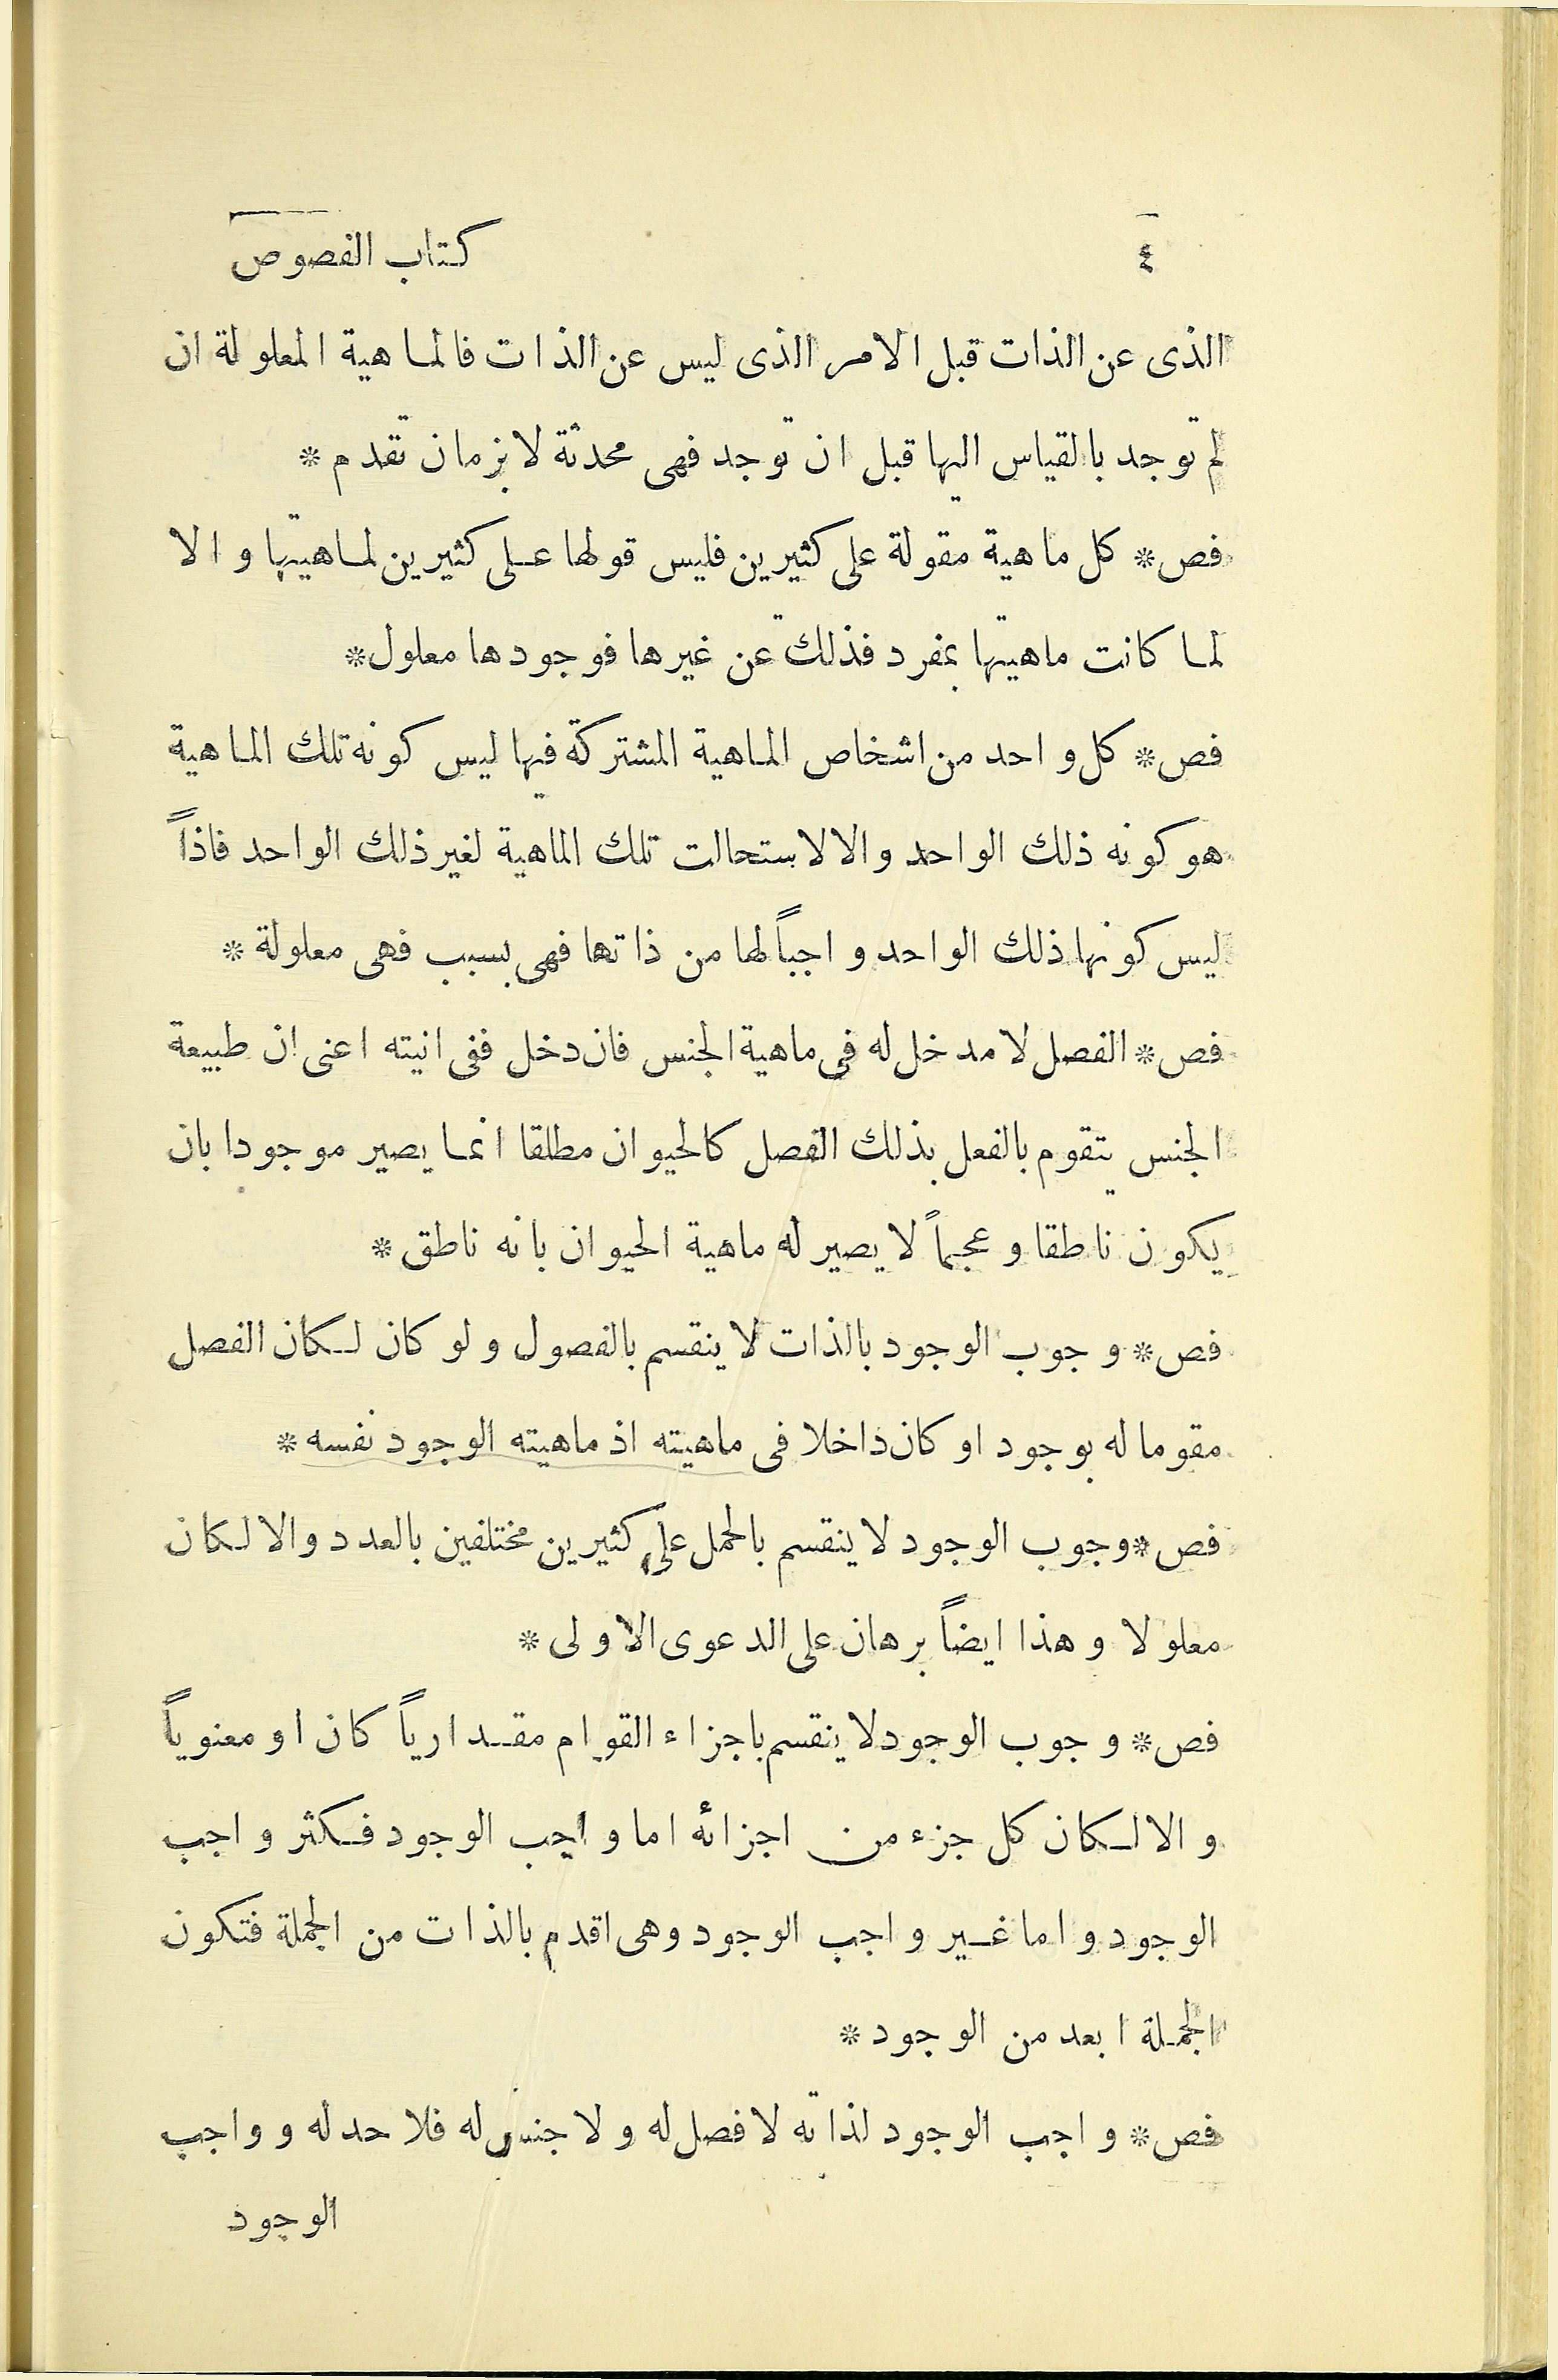 ٤ كتاب الفصوص
الذى عن الذات قبل الامر الذى ليس عن الذات فالماهية المعلولة ان
لم توجد بالقياس اليها قبل ان توجد فهى محدثة لا بزمان تقدم *
فص * كل ماهية مقولة على كثيرين فليس قولها على كثيرين لماهيتها والا
لما كانت ماهيتها بمفرد فذلك عن غيرها فوجودها معلول *
فص * كل واحد من اشخاص الماهية المشتركة فيها ليس كونه تلك الماهية
هو كونه ذلك الواحد والا لاستحالت تلك الماهية لغير ذلك الواحد فاذاً
ليس كونها ذلك الواحد واجباً لها من ذاتها فهى بسبب فهى معلولة *
فص * الفصل لا مدخل له فى ماهية الجنس فان دخل ففى انيته اعنى ان طبيعة
الجنس يتقوم بالفعل بذلك الفصل كالحيوان مطلقا انما يصير موجودا بان
يكون ناطقا و عجماً لا يصير له ماهية الحيوان بانه ناطق *
فص * وجوب الوجود بالذات لا ينقسم بالفصول ولو كان لكان الفصل
مقوما له بوجود او كان داخلا فى ماهيته اذ ماهيته الوجود نفسه *
فص * وجوب الوجود لا ينقسم بالحمل على كثيرين مختلفين بالعدد والا لكان
معلولا وهذا ايضاً برهان على الدعوى الاولى *
فص * وجوب الوجود لا ينقسم باجزاء القوام مقدارياً كان او معنوياً
والا لكان كل جزء من اجزائه اما واجب الوجود فكثر واجب
الوجود واما غير واجب الوجود وهى اقدم بالذات من الجملة فتكون
الجملة ابعد من الوجود *
فص * واجب الوجود لذاته لا فصل له ولا جنس له فلا حد له وواجب
الوجود